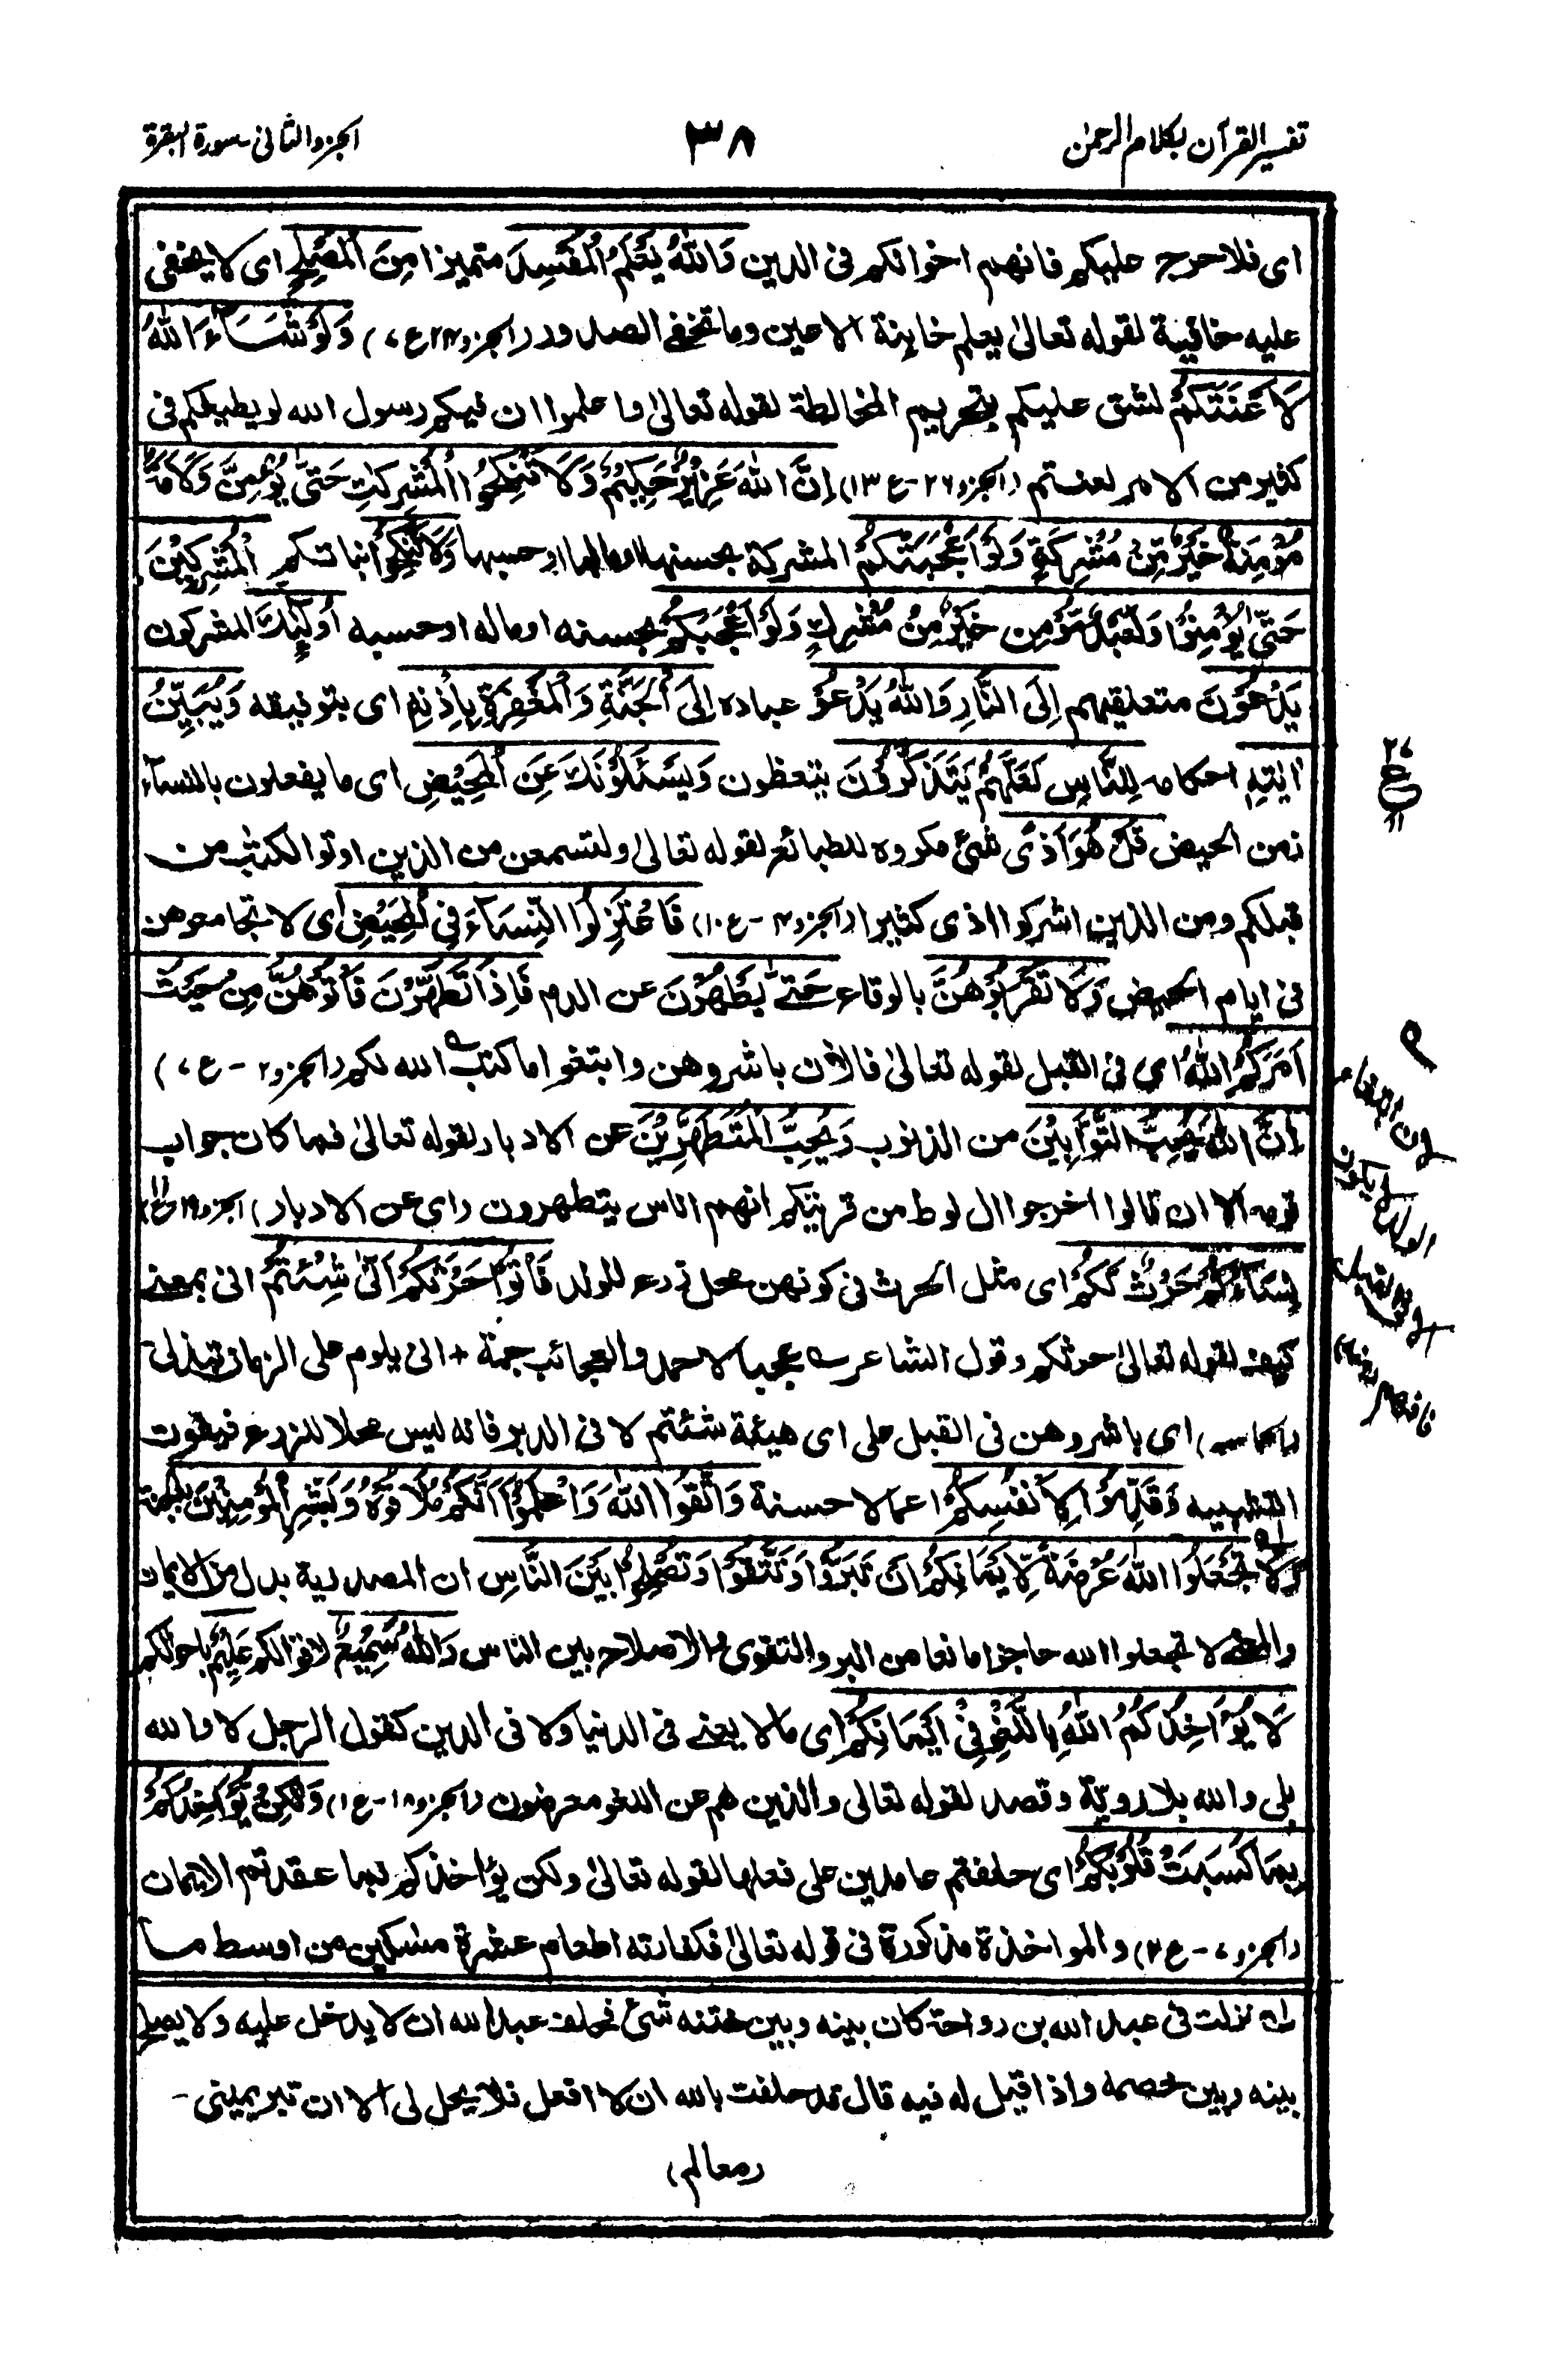 تفسير القرآن بكلام الرحمٰن
٣٨
الجزء الثانی۔سورة البقرة
ای فلا حرج عليكم فانهم اخوانكم فى الدين وَاللّٰهُ يَعْلَمُ الْمُفْسِدَ متميزا مِنَ الْمُصْلِحِ ای لا يخفى
عليه خافية لقوله تعالىٰ يعلم خاينة الاعين وما تخفى الصدور (الجزو٢٤ع٧) وَلَوْ شَاءَ اللّٰهُ
لَاَعْنَتَكُمْ لشق عليكم بتحريم المخالطة لقوله تعالىٰ واعلموا ان فيكم رسول الله لو يطيعكم فى
كثير من الامر لعنتم (الجزو٢٦-ع١٣) اِنَّ اللّٰهَ عَزِيْزٌ حَكِيْمٌ وَلَا تَنْكِحُوا الْمُشْرِكٰتِ حَتّٰى يُؤْمِنَّ وَلَاَمَةٌ
مُؤْمِنَةٌ خَيْرٌ مِّنْ مُّشْرِكَةٍ وَلَوْ اَعْجَبَتْكُمْ المشركة بحسنها او مالها او حسبها وَلَا تُنْكِحُوا بناتكم الْمُشْرِكِيْنَ
حَتّٰى يُؤْمِنُوْا وَلَعَبْدٌ مُّؤْمِنٌ خَيْرٌ مِّنْ مُّشْرِكٍ وَلَوْ اَعْجَبَكُمْ بحسنه او ماله او حسبه اُولٰٓئِكَ المشركون
يَدْعُوْنَ متعلقيهم اِلَى النَّارِ وَاللّٰهُ يَدْعُوْ عباده اِلَى الْجَنَّةِ وَالْمَغْفِرَةِ بِاِذْنِهٖ ای بتوفيقه وَيُبَيِّنُ
اٰيٰتِهٖ احكامه لِلنَّاسِ لَعَلَّهُمْ يَتَذَكَّرُوْنَ يتعظون وَيَسْـَٔلُوْنَكَ عَنِ الْمَحِيْضِ ای ما يفعلون بالنسآء
زمن الحيض قُلْ هُوَ اَذًى شئ مكروه للطبائع لقوله تعالىٰ ولتسمعن من الذين اوتوا الكتٰب من
قبلكم ومن الذين اشركوا اذى كثيرا (الجزو٤-ع١٠) فَاعْتَزِلُوا النِّسَآءَ فِى الْمَحِيْضِ ای لا تجامعوهن
فى ايام الحيض وَلَا تَقْرَبُوْهُنَّ بالوقاع حَتّٰى يَطْهُرْنَ عن الدم فَاِذَا تَطَهَّرْنَ فَأْتُوْهُنَّ مِنْ حَيْثُ
اَمَرَكُمُ اللّٰهُ ای فى القبل لقوله تعالىٰ فالاٰن باشروهن وابتغوا ما كتب الله لكم (الجزو٢-ع٧)
اِنَّ اللّٰهَ يُحِبُّ التَّوَّابِيْنَ من الذنوب وَيُحِبُّ الْمُتَطَهِّرِيْنَ عن الادبار لقوله تعالىٰ فما كان جواب
قومه الا ان قالوا اخرجوا ال لوط من قريتكم انهم اناس يتطهرون (ای عن الادبار) الجزو١٩
نِسَآؤُكُمْ حَرْثٌ لَّكُمْ ای مثل الحرث فى كونهن محل زرع للولد فَأْتُوْا حَرْثَكُمْ اَنّٰى شِئْتُمْ انى بمعنى
كيف لقوله تعالىٰ حرثكم وقول الشاعر عجبا لاحمد والعجائب جمة + انى يلوم على الزمان تبذلى
(حماسه) ای باشروهن فى القبل على ای هيئة شئتم لا فى الدبر فانه ليس محلا للزرع فيفوت
التشبيه وَقَدِّمُوْا لِاَنْفُسِكُمْ اعمالا حسنة وَاتَّقُوا اللّٰهَ وَاعْلَمُوْٓا اَنَّكُمْ مُّلٰقُوْهُ وَبَشِّرِ الْمُؤْمِنِيْنَ بالجنة
وَلَا تَجْعَلُوا اللّٰهَ عُرْضَةً لِّاَيْمَانِكُمْ اَنْ تَبَرُّوْا وَتَتَّقُوْا وَتُصْلِحُوْا بَيْنَ النَّاسِ ان المصدرية بدل من الايمان
والمعنى لا تجعلوا الله حاجزا مانعا من البر والتقوى والاصلاح بين الناس وَاللّٰهُ سَمِيْعٌ لاقوالكم عَلِيْمٌ باحوالكم
لَا يُؤَاخِذُكُمُ اللّٰهُ بِاللَّغْوِ فِىْٓ اَيْمَانِكُمْ ای ما لا يعنى فى الدنيا ولا فى الدين كقول الرجل لا والله
بلى والله بلا رويّة وقصد لقوله تعالى والذين هم عن اللغو معرضون (الجزو١٨-ع١) وَلٰكِنْ يُّؤَاخِذُكُمْ
بِمَا كَسَبَتْ قُلُوْبُكُمْ ای حلفتم عامدين على فعلها لقوله تعالىٰ ولكن يؤاخذكم بما عقدتم الايمان
(الجزو٧-ع٢) والمواخذة مذكورة فى قوله تعالىٰ فكفارته اطعام عشرة مسٰكين من اوسط ما
له نزلت فى عبد الله بن رواحة كان بينه وبين ختنه شئ فحلف عبد الله ان لا يدخل عليه ولا يصلح
بينه وبين خصمه واذا قيل له فيه قال قد حلفت بالله ان لا افعل فلا يحل لى الا ان تبر يمينى-
(معالم)
٢٧
ع
١١